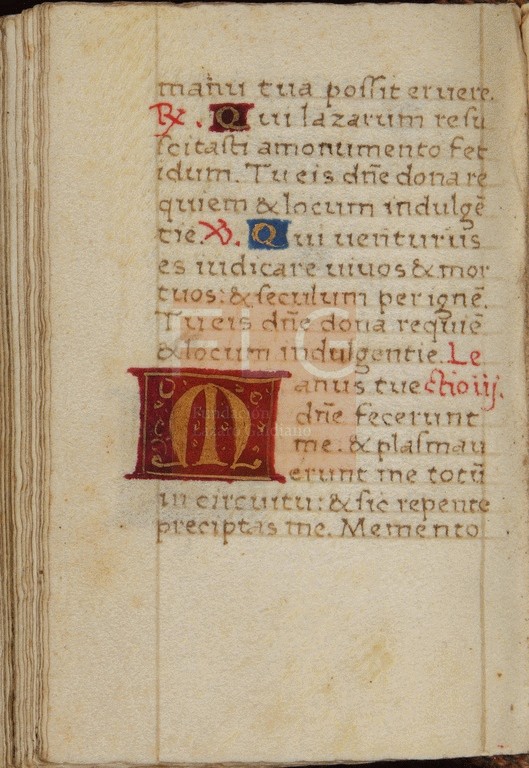 manu tua possit eruere.
℟. Qui lazarum resu
scitasti amonumento fet
idum. Tu eis dñe dona re
quiem & locum indulgē
tie. ℣. Qui uenturus
es iudicare uiuos & mor
tuos: & seculum per ignē.
Tu eis dñe dona requiē
& locum indulgentie. Le
Manus tue ctio iij.
dñe fecerunt
me. & plasmau
erunt me totū
in circuitu: & sic repente
precipitas me. Memento
FLG
Fundación
Lázaro Galdiano